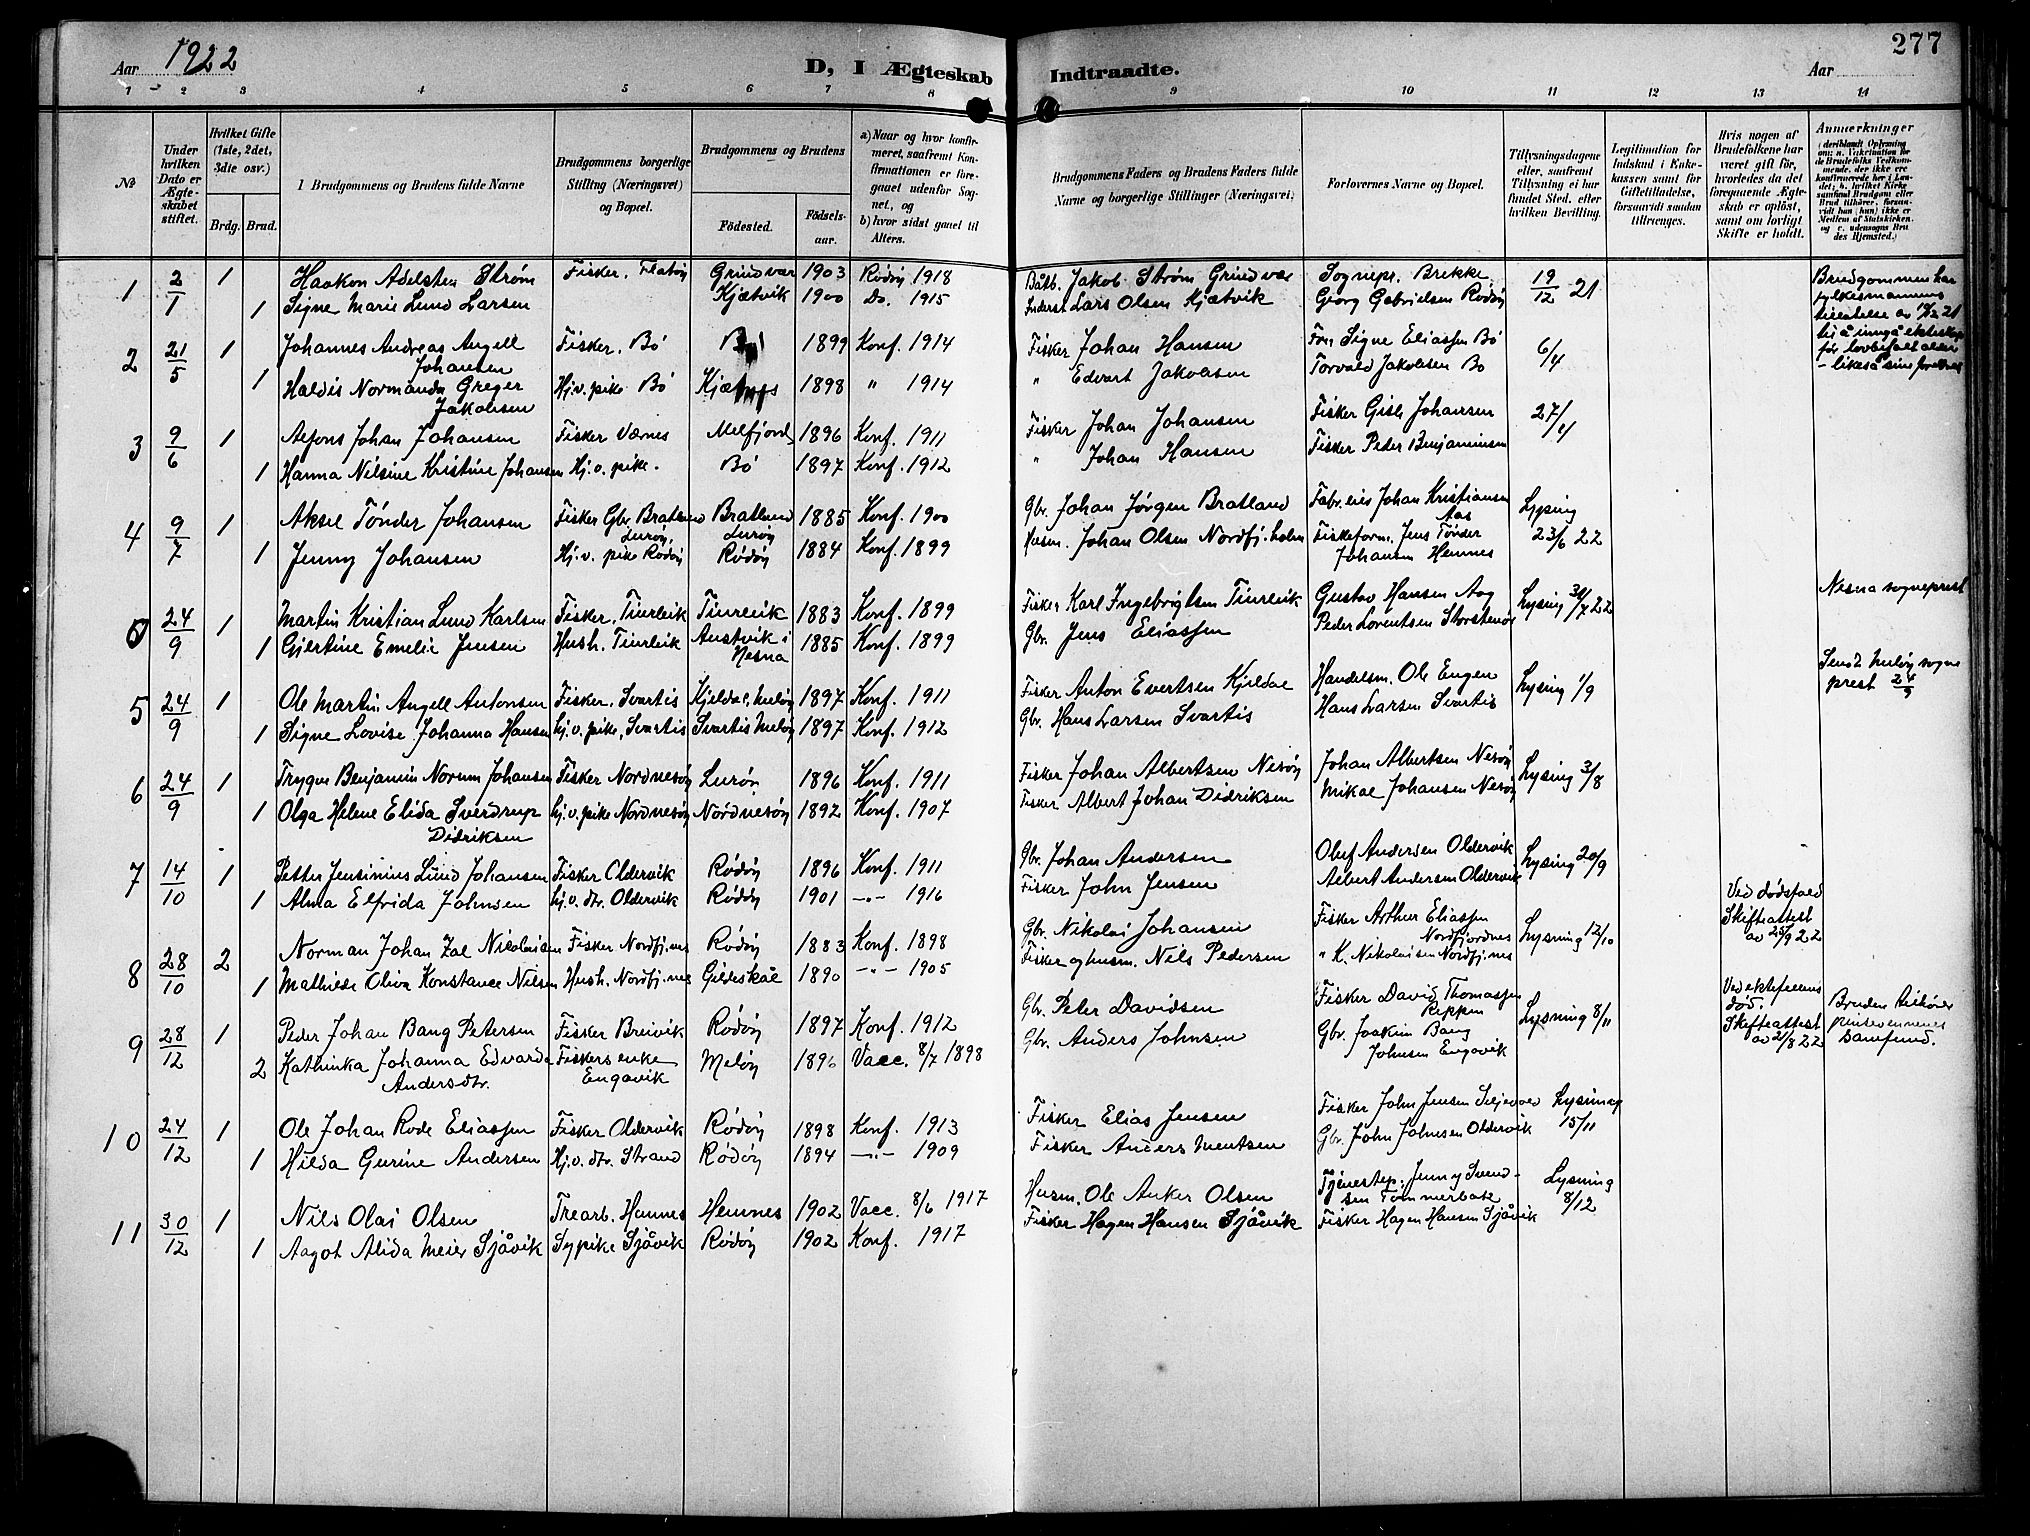 Aar 1922
D, I Ægteskab Indtraadte.
277
Aar
1 2 3 4 5 6 7 8 9 10 11 12 13 14
№
Under hvilken Dato er Ægteskabet stiftet.
Hvilket Gifte (1ste, 2det, 3die osv.)
Brdg. Brud.
Brudgommens og Brudens fulde Navne
Brudgommens borgerlige Stilling (Næringsvei) og Bopæl.
Brudgommens og Brudens
Födested. Födselsaar.
a) Naar og hvor konfirmeret, saafremt Konfirmationen er foregaaet udenfor Sognet, og
b) hvor sidst gaaet til Alters.
Brudgommens Faders og Brudens Faders fulde Navne og borgerlige Stillinger (Næringsvei)
Forlovernes Navne og Bopæl.
Tillysningsdagene eller, saafremt Tillysning ei har fundet Sted, efter hvilken Bevilling.
Legitimation for Indskud i Enkekassen samt for Giftetilladelse, forsaavidt saadan tiltrænges.
Hvis nogen af Brudefolkene har været gift för, hvorledes da det foregaaende Ægteskab er oplöst, samt om lovligt Skifte er holdt.
Anmærkninger
1 2/1 1 Haakon Adelsten Strøm Fisker, Flatøy Grindvær 1903 Rødøy 1918 Båtb. Jakob Strøm Grindvær Sognepr. Brekke 19/12 21 Brudgommen har
1 Signe Marie Lund Larsen Kjætvik 1900 Do. 1915 Inderst Lars Olsen Kjætvik Georg Gabrielsen Rødøy fylkesmannens
2 21/5 1 Johannes Andreas Angell Johansen Fisker, Bø Bø 1899 Konf. 1914 Fisker Johan Hansen Frn. Signe Eliassen Bø 6/4
1 Haldis Normanda Greger Jakobsen Hj.v. pike Bø 1898 " 1914 " Edvart Jakobsen Torvald Jakobsen Bø
3 9/6 1 Alfons Johan Johansen Fisker Værnes Melfjord 1896 Konf. 1911 Fisker Johan Johansen Fisker Gisle Johansen 27/4
1 Hanna Nilsine Kristine Johansen Hj.v. pike. Bø 1897 Konf. 1912 " Johan Hansen Fisker Peder Benjaminsen
4 9/7 1 Aksel Tønder Johansen Fisker Gbr. Bratland Lurøy Bratland Lurøy 1885 Konf. 1900 Gbr. Johan Jørgen Bratland Fabr.eier Johan Kristiansen Aas Lysing
1 Jenny Johansen Hj.v. pike Rødøy Rødøy 1884 Konf. 1899 Husm. Johan Olsen Nordfj.holm Fiskeform. Jens Tønder Johansen Hemnes 23/6 22
5 24/9 1 Martin Kristian Lund Karlsen Fisker, Tinrleik Tinrleik 1883 Konf. 1899 Fisker Karl Ingebrigtsen Tinrleik Gustav Hansen Aag Lysing 30/7 22 Nesna sogneprest
1 Gjertine Emelie Jensen Hush. Tinrleik Austvik i Nesna 1885 Konf. 1899 Gbr. Jens Eliassen Peder Lorentsen Storstenør
5 24/9 1 Ole Martin Angell Antonsen Fisker, Svartis Kjeldal, Meløy 1897 Konf. 1911 Fisker Anton Evertsen Kjeldal Handelsm. Ole Engen Lysing 1/9 Sendt Meløy sogneprest 24/9
1 Signe Lovise Johanna Hansen hj.v. pike, Svartis Svartis Meløy 1897 Konf. 1912 Gbr. Hans Larsen Svartis Hans Larsen Svartis
6 24/9 1 Trygve Benjamin Norum Johansen Fisker Nordnesøy Lurøy 1896 Konf. 1911 Fisker Johan Albertsen Nesøy Johan Albertsen Nesøy Lysing 3/8
1 Olga Helene Elida Sverdrup Didriksen hj.v. pike Nordnesøy Nordnesøy 1892 Konf. 1907 Fisker Albert Johan Didriksen Mikal Johansen Nesøy
7 14/10 1 Petter Jensinius Lund Johansen Fisker Oldervik Rødøy 1896 Konf. 1911 Gbr. Johan Andersen Oluf Andersen Oldervik Lysing 20/9
1 Alma Elfrida Johnsen hj.v. dtr. Oldervik Rødøy 1901 -"- 1916 Fisker John Jensen Albert Andersen Oldervik
8 28/10 2 Norman Johan Zal Nicolaisen Fisker Nordfj.nes Rødøy 1883 Konf. 1898 Gbr. Nikolai Johansen Fisker Arthur Eliassen Nordfjordnes Lysing 12/10 Ved dødsfald Skifteattest av 25/9 22
1 Mathilde Oliva Konstance Nilsen Hush. Nordfj.nes Gildeskål 1890 -"- 1905 Fisker og husm. Nils Pedersen " K. Nikolaisen Nordfj.nes
9 28/12 1 Peder Johan Bang Petersen Fisker Breivik Rødøy 1897 Konf. 1912 Gbr. Peter Davidsen Fisker David Thomassen Reppen Lysing 8/11 Ved ektefellens død. Skifteattest av 21/8 22 Bruden tilhører pinsevennenes samfund.
2 Kathinka Johanna Edvarda Andersdtr. Fiskers enke Engavik Meløy 1896 Vacc. 8/7 1898 Gbr. Anders Johnsen Gbr. Joakim Bang Johnsen Engavik
10 24/12 1 Ole Johan Rode Eliassen Fisker Oldervik Rødøy 1898 Konf. 1913 Fisker Elias Jensen Fisker John Jensen Lysning 15/11
1 Hilda Gurine Andersen Hj.v. dtr. Strand Rødøy 1894 -"- 1909 Fisker Anders Mentsen Gbr. John Johnsen Oldervik
11 30/12 1 Nils Olai Olsen Trearb. Hemnes Hemnes 1902 Vacc. 8/6 1917 Husm. Ole Anker Olsen Tjenestep. Jenny Svendsen Tømmerbakk Lysning 8/12
1 Aagot Alida Meier Sjåvik Sypike Sjåvik Rødøy 1902 Konf. 1917 Fisker Hagen Hansen Sjåvik Fisker Hagen Hansen Sjåvik